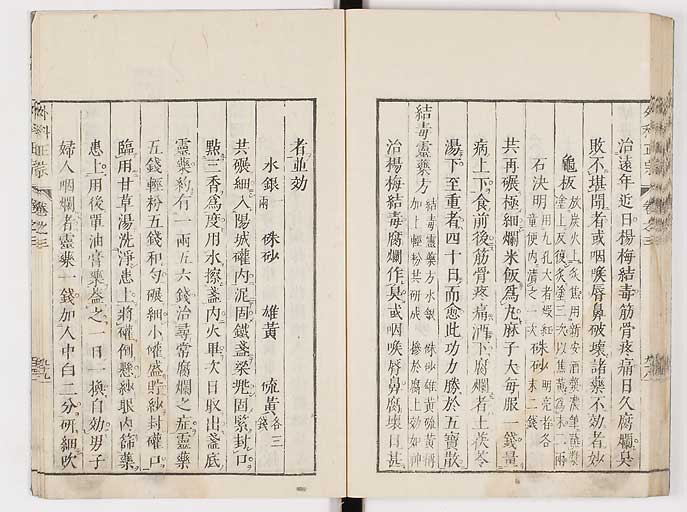 治遠年近日楊梅結毒筋骨疼痛日久腐爛臭
敗不堪聞者或咽喉唇鼻破壞諸藥不効者妙
龜板
放炭火上炙焦用新安酒漿濃筆蘸漿
塗上反復炙塗三次以焦黃為末二兩
石決明
用九孔大者煅紅
童便內漬之一次
硃砂
明亮者各
末二錢
共再碾極細爛米飯為丸麻子大每服一錢量
病上下食前後筋骨疼痛酒下腐爛者土茯苓
湯下至重者四十日而愈此功力勝於五寶散
結毒靈藥方
結毒靈藥方水銀
加上輕粉共研成
硃砂雄黃硫黃稱
摻於腐上効如神
治楊梅結毒腐爛作臭或咽喉唇鼻腐壞日甚
者並効
水銀
一兩
硃砂
雄黃
硫黃
各三
錢
共碾細入陽城罐內泥固鐵盞梁兠固緊封口
點三香為度用水擦盞內火畢次日取出盞底
靈藥約有一兩五六錢治尋常腐爛之症靈藥
五錢輕粉五錢和勻碾細小罐盛貯紗封罐口
臨用甘草湯洗淨患上將罐倒懸紗眼內篩藥
患上用後單油膏藥蓋之一日一換自効男子
婦人咽爛者靈藥一錢加人中白二分研細吹
外科正宗
卷之三
外科正宗
卷之三